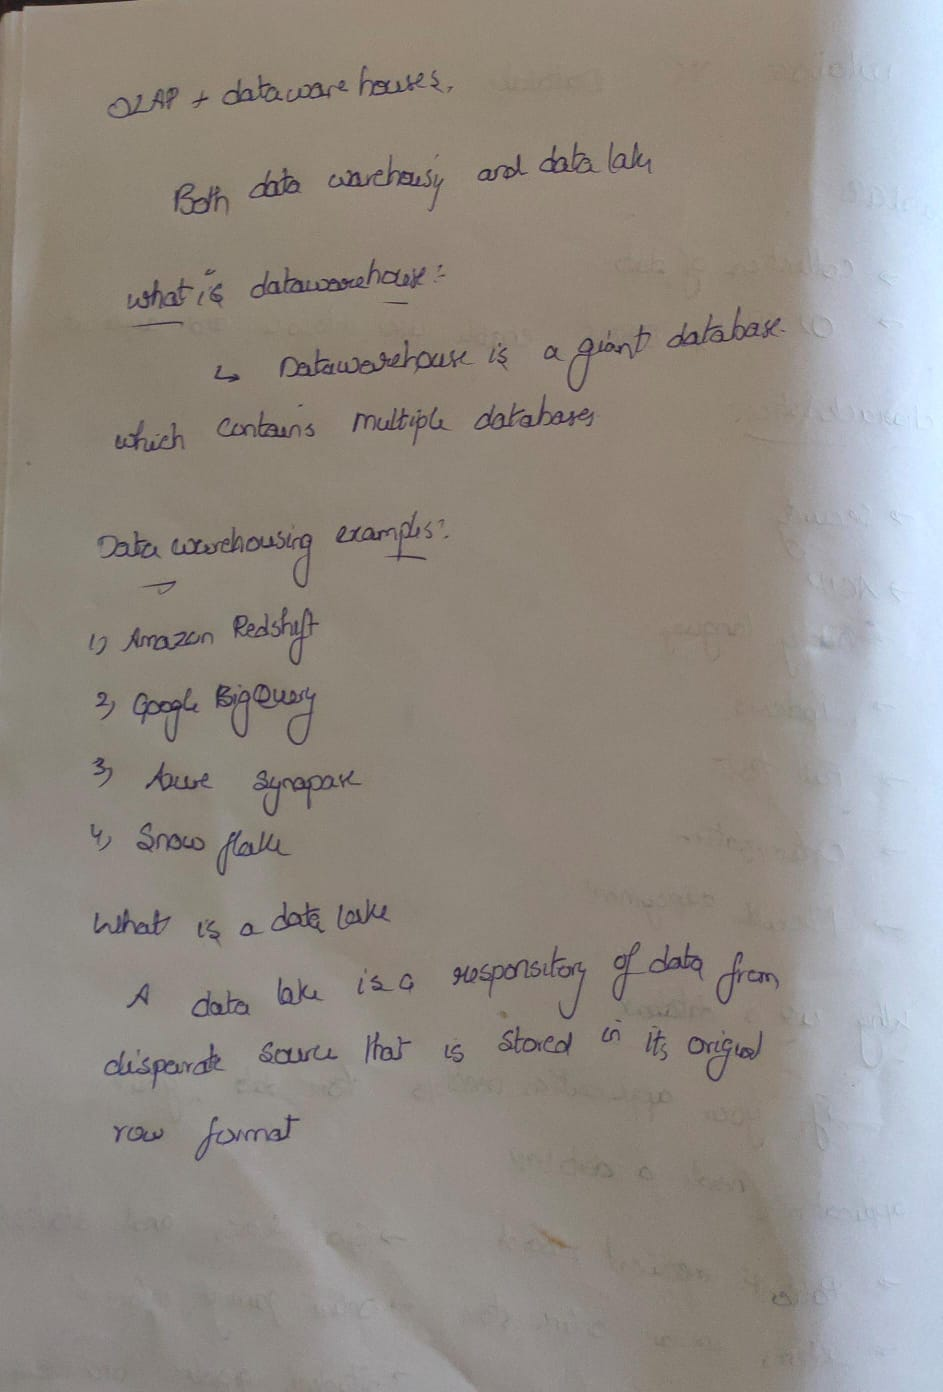 OLAP + dataware houses.
Both data warehousing and data lake
what is datawarehouse:
↳ Datawarehouse is a giant database.
which contains multiple databases.
Data warehousing examples:
1) Amazon Redshift
2) Google BigQuery
3) Azure Synapase
4) Snow flake
What is a data lake
A data lake is a responsitory of data from
disparate source that is stored in its original
row format